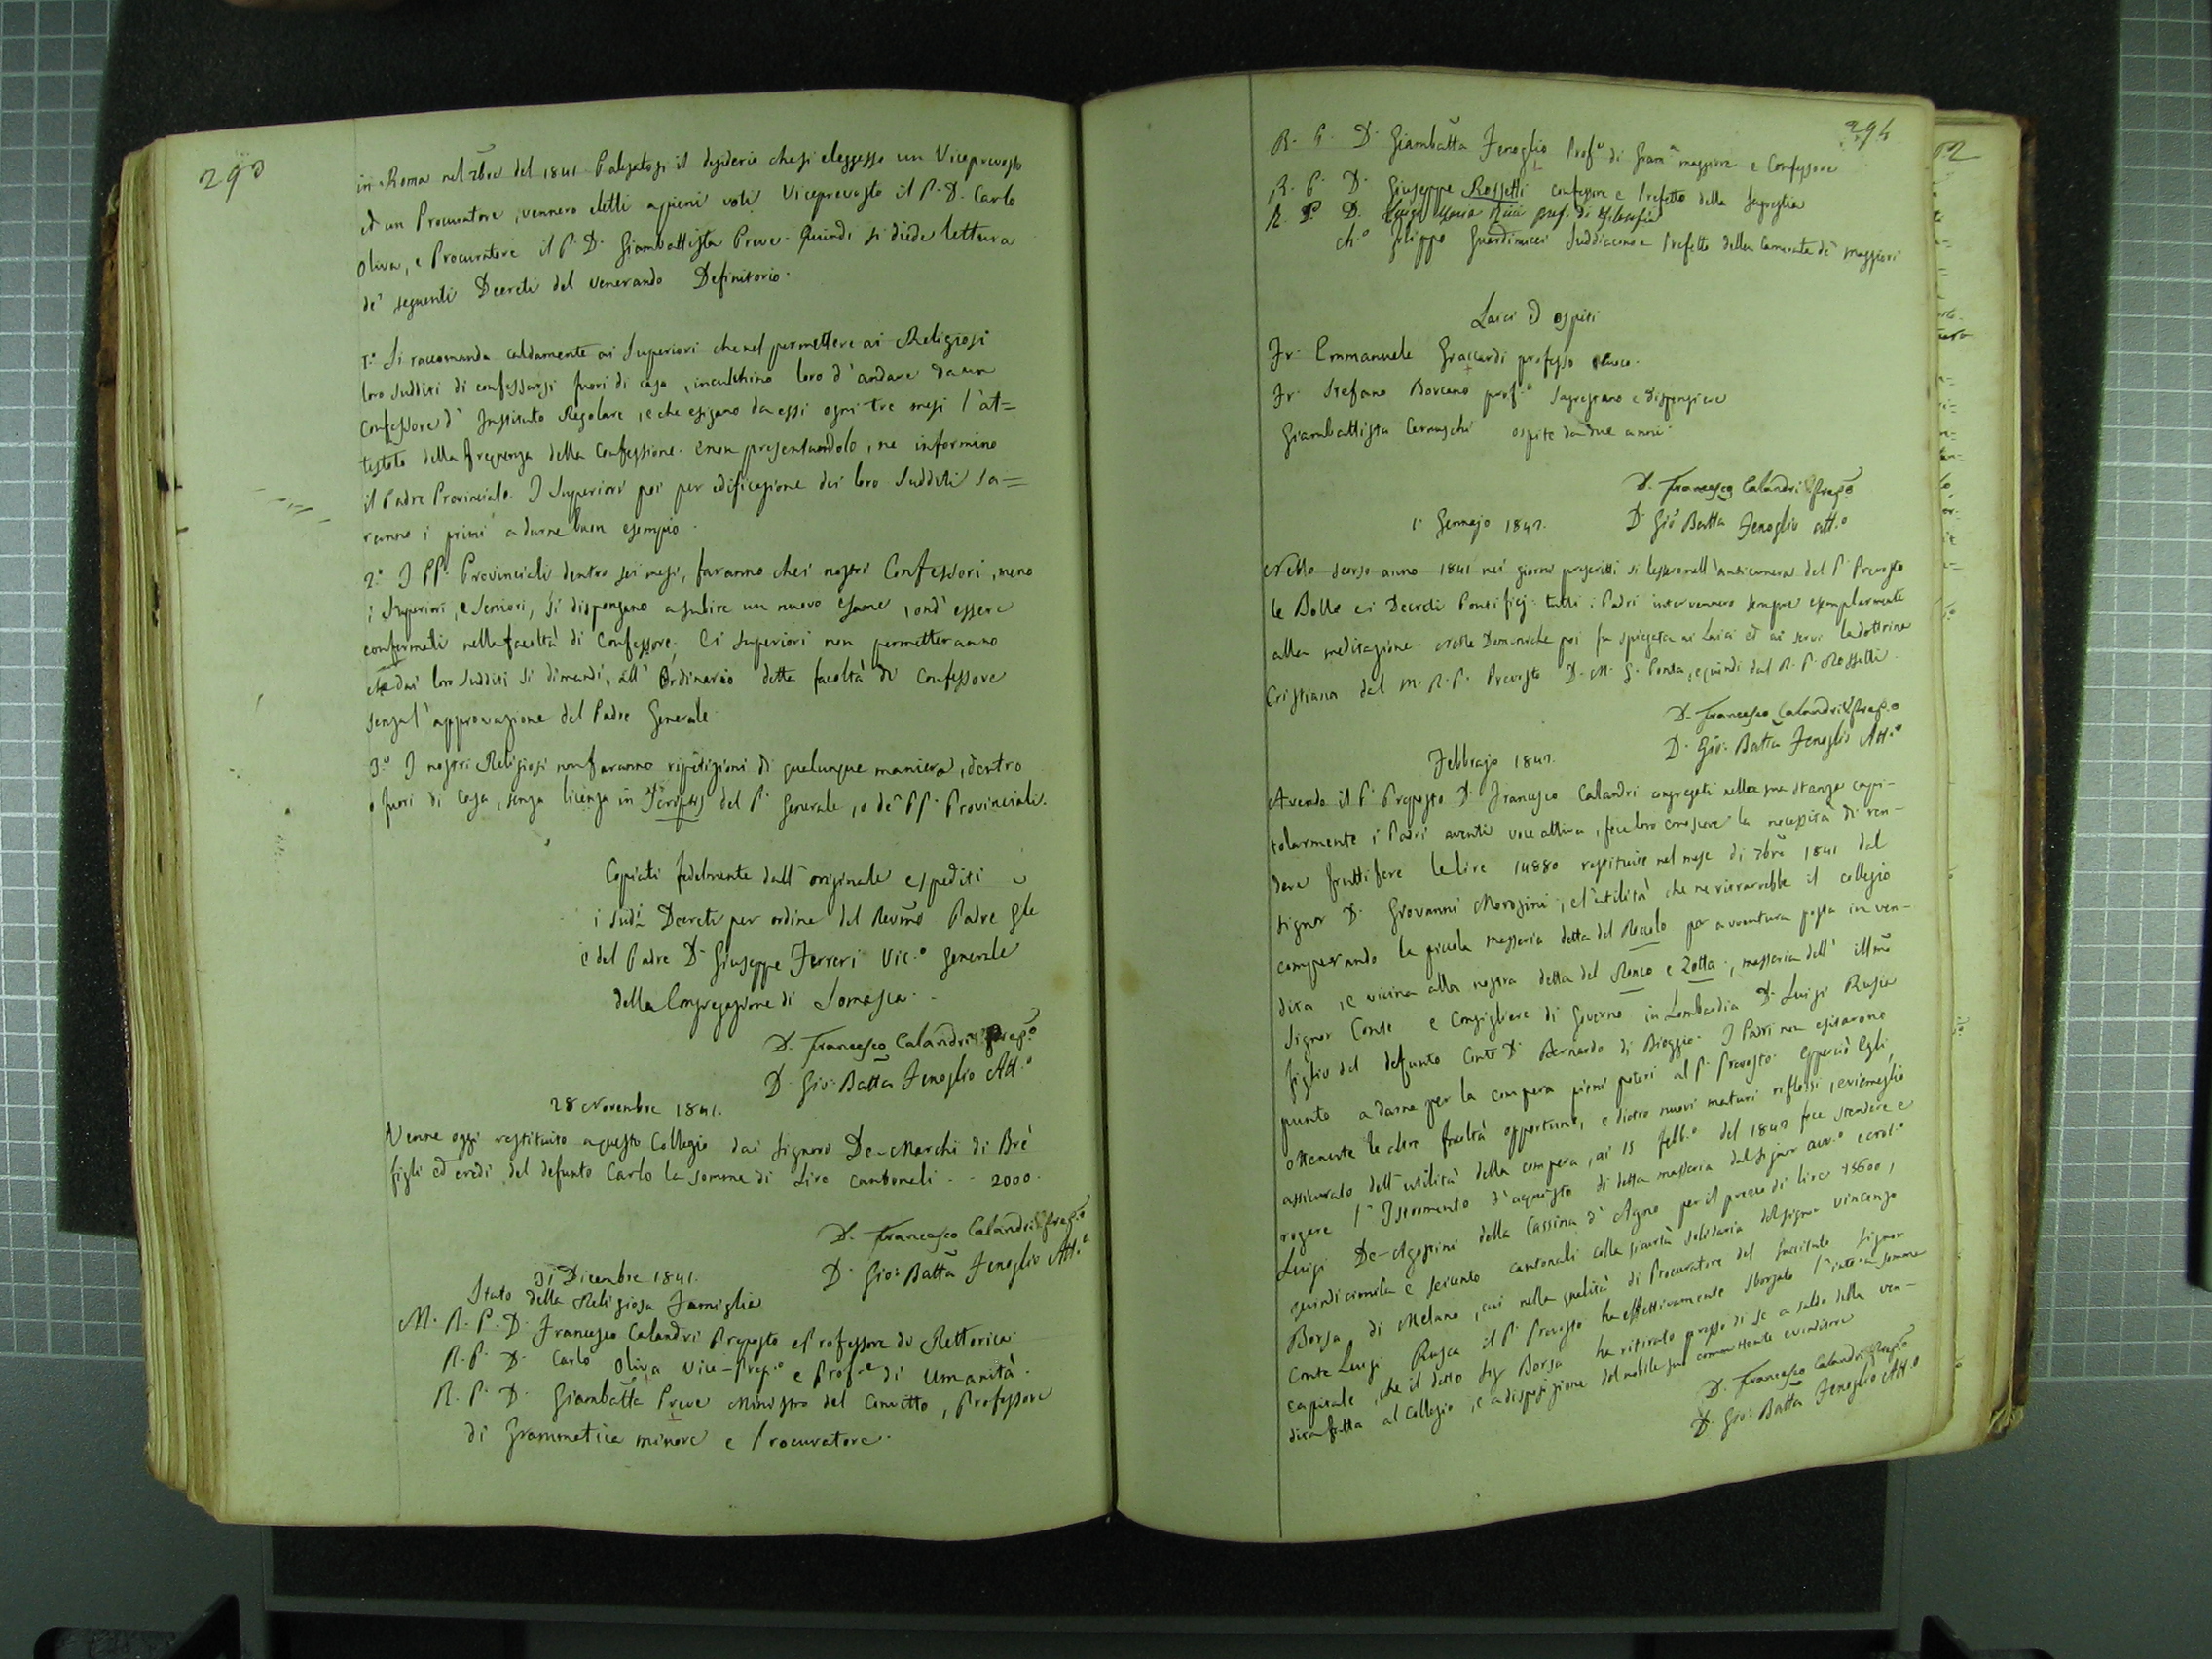 293
in Roma nel 7bre del 1841. Palesatosi il desiderio che si eleggesse un Viceprevosto
ed un Procuratore, vennero eletti a pieni voti Viceprevosto il P. D. Carlo
Oliva, e Procuratore il P. D. Giambattista Preve. Quindi si diede lettura
de' seguenti Decreti del venerando Definitorio.
1.° Si raccomanda caldamente ai Superiori che nel permettere ai Religiosi
loro sudditi di confessarsi fuori di casa, inculchino loro d'andare da un
Confessore d'Instituto Regolare, e che esigano da essi ogni tre mesi l'at=
testato della frequenza della Confessione. e non presentandolo, ne informino
il Padre Provinciale. I Superiori poi per edificazione dei loro sudditi sa=
ranno i primi a darne buon esempio.
2.° I PP. Provinciali dentro sei mesi, faranno che i nostri Confessori, meno
i Superiori, e Seniori, si dispongano a subire un nuovo esame, ond'essere
confermati nella facoltà di Confessore. Ei Superiori non permetteranno
che dai loro sudditi si dimandi, all'Ordinario detta facoltà di Confessore
senza l'approvazione del Padre Generale.
3.° I nostri Religiosi non faranno ripetizioni di qualunque maniera, dentro
o fuori di Casa, senza licenza in Scriptis del P. Generale, o de' PP. Provinciali.
Copiati fedelmente dall'originale espediti
i sud.i Decreti per ordine del Revmo Padre Gle
e del Padre D. Giuseppe Ferreri Vic.° Generale
della Congregazione di Somasca.
D. Francesco Calandri Prep.°
D. Gio: Batta Fenoglio Att.°
28 Novembre 1841.
Venne oggi restituito a questo Collegio dai Signori De-Marchi di Brè
figli ed eredi del defunto Carlo la somma di Lire cantonali . . 2000.
D. Francesco Calandri Prep.°
D. Gio: Batta Fenoglio Att.°
31 Dicembre 1841.
Stato della Religiosa Famiglia
M. R. P. D. Francesco Calandri Preposto e Professore di Rettorica.
R. P. D. Carlo Oliva Vice-Prep.° e Prof.e di Umanità.
R. P. D. Giambatta Preve Ministro del Convitto, Professore
di Grammatica minore e Procuratore.
294
R. P. D. Giambatta Fenoglio Prof.e di Gram.a maggiore e Confessore
R. P. D. Giuseppe Rossetti Confessore e Prefetto della Sagrestia
R. P. D. Luigi Maria prof. di Filosofia
Ch.° Filippo Guardinucci Suddiacono e Prefetto della Camerata de' maggiori
Laici ed ospiti
Fr. Emmanuele Graccardi professo cuoco.
Fr. Stefano Borcano prof.° Sagrestano e dispensiere
Giambattista Cernuschi ospite da due anni.
D. Francesco Calandri Prep.o
D. Gio Batta Fenoglio att.°
1. Gennajo 1842.
Nello scorso anno 1841 nei giorni prescritti si lessero nell'anticamera del P. Prevosto
le Bolle ei Decreti Pontificj. tutti i Padri intervennero sempre esemplarmente
alla meditazione. Nelle Domeniche poi fu spiegata ai Laici ed ai servi la dottrina
Cristiana dal M. R. P. Prevosto D. M. G. Ponta, e quindi dal R. P. Rossetti.
D. Francesco Calandri Prep.o
D. Gio: Batta Fenoglio Att.°
Febbrajo 1842.
Avendo il P. Preposto D. Francesco Calandri congregati nella sua stanza capi-
tolarmente i Padri aventi voce attiva, fece loro conoscere la necessità di ren-
dere fruttifere le lire 14880 restituite nel mese di 7bre 1841 dal
signor D. Giovanni Morosini, e l'utilità che ne ritrarrebbe il collegio
comperando la piccola masseria detta del Roccolo per avventura posta in ven-
dita, e vicina alla nostra detta del Ronco e Zotta, masseria dell' illmo
Signor Conte e Consigliere di Governo in Lombardia D. Luigi Rusca
figlio del defunto Conte D. Bernardo di Bioggio. I Padri non esitarono
punto a dare per la compera pieni poteri al P. Prevosto. Epperciò Egli
ottenute le altre facoltà opportune, e dietro nuovi maturi riflessi, e viemeglio
assicurato dell'utilità della compera, ai 15 Febb.° del 1842 fece stendere e
rogare l'Istromento d'acquisto di detta masseria dal signor avv.°
Luigi De-Agostini della Cassina d'Agno per il prezzo di lire 15600,
quindicimila e seicento cantonali colla sicurtà solidaria del signor Vincenzo
Borsa di Melano, cui nella qualità di Procuratore del signor
Conte Luigi Rusca il P. Prevosto ha effettivamente sborsato l'intera somma
capitale, che il detto Sig Borsa ha ritirato presso di se a saldo della ven-
dita fatta al Collegio, e a disposizione del nobile suo committente e venditore
D. Francesco Calandri Prep.o
D. Gio: Batta Fenoglio Att.o